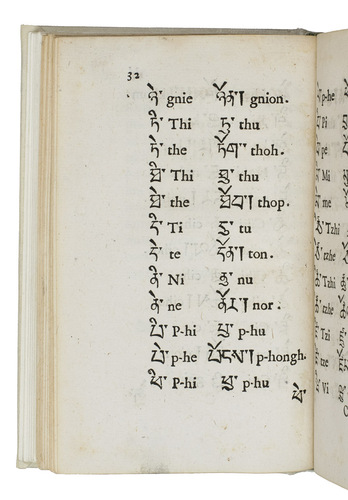 32
ཉེ་ gnie ཉོན། gnion.
ཏི་ Thi ཏུ་ thu
ཏེ་ the ཏོག་ thoh.
ཐི་ Thi ཐུ་ thu
ཐེ་ the ཐོབ། thop.
དི་ Ti དུ་ tu
དེ་ te དོན། ton.
ནི་ Ni ནུ་ nu
ནེ་ ne ནོར། nor.
པི་ P-hi པུ་ p-hu
པེ་ p-he པོངས། p-hongh.
ཕི་ P-hi ཕུ་ p-hu
ཕེ་
p-he
Pi
pe
Mi
me
Tzhi
tzhe
Tzhi
tzhe
Tzi
tze
Vi